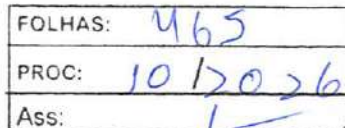 FOLHAS: 465
PROC: 10/2026
Ass: